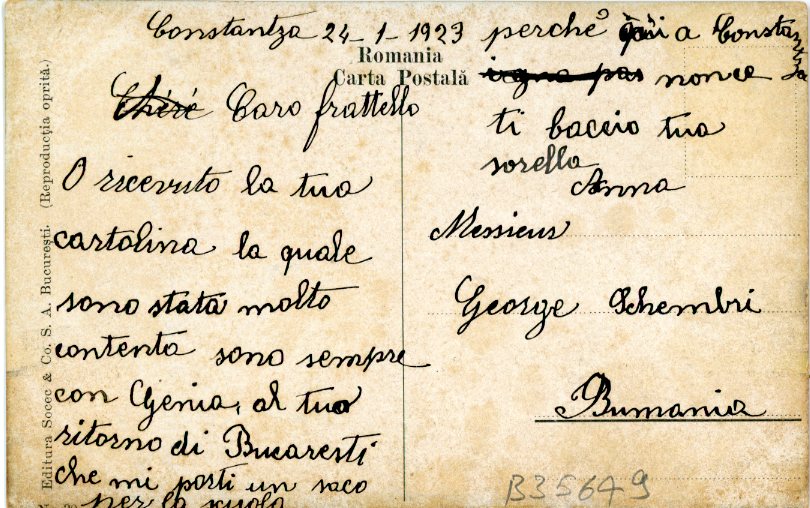 Constantza 24-1-1923
Romania
Carta Poștală
Caro frattello
O ricevuto la tua
cartolina la quale
sono stata molto
contenta sono sempre
con Genia, al tuo
ritorno di Bucaresti
che mi porti un saco
per la scuola
perche qui a Constanza
non ce
ti baccio tua
sorella
Anna
Messieur
George Schembri
Rumania
B35649
Editura Socec & Co. S. A. București. (Reproducția oprită.)